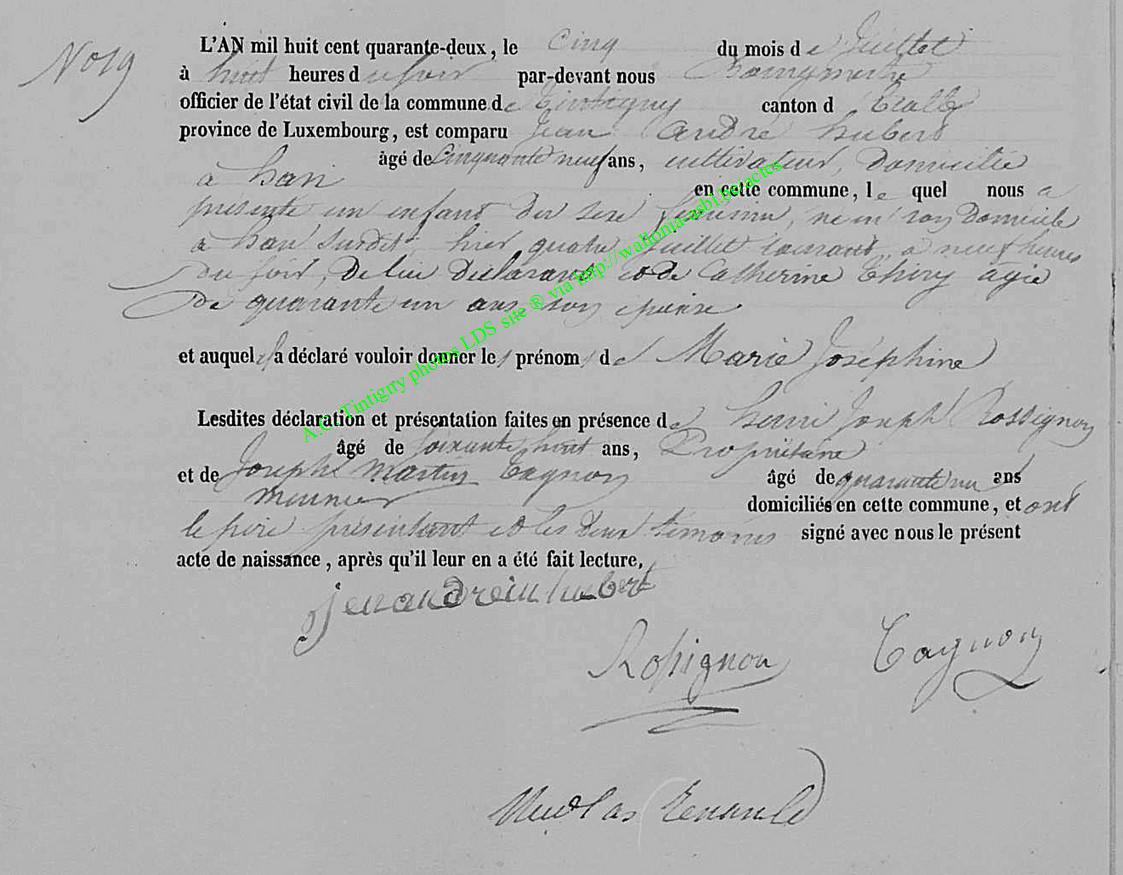 No 19
L'AN mil huit cent quarante-deux, le cinq du mois de Juillet
à huit heures du soir par-devant nous Bourgmestre
officier de l'état civil de la commune de Tintigny canton d'Etalle
province de Luxembourg, est comparu Jean André hubert
âgé de Cinquante neuf ans, cultivateur, domicilié
à han en cette commune, lequel nous a
présenté un enfant du sexe féminin, né en son domicile
à han susdit hier quatre juillet courant, à neuf heures
du soir, de lui déclarant et de Catherine Thiry agée
de quarante un ans son épouse
et auquel il a déclaré vouloir donner les prénoms de Marie Joséphine
Lesdites déclaration et présentation faites en présence de henri Joseph Rossignon
âgé de soixante huit ans, Propriétaire
et de Joseph Martin Tagnon âgé de quarante un ans
meunier domiciliés en cette commune, et ont
le père présentant et les deux témoins signé avec nous le présent
acte de naissance, après qu'il leur en a été fait lecture,
jenandreiu hubert
Rossignon Tagnon
Nicolas Renauld
A.C. Tintigny photos LDS site ® via http://wallonia-asbl.be/actes